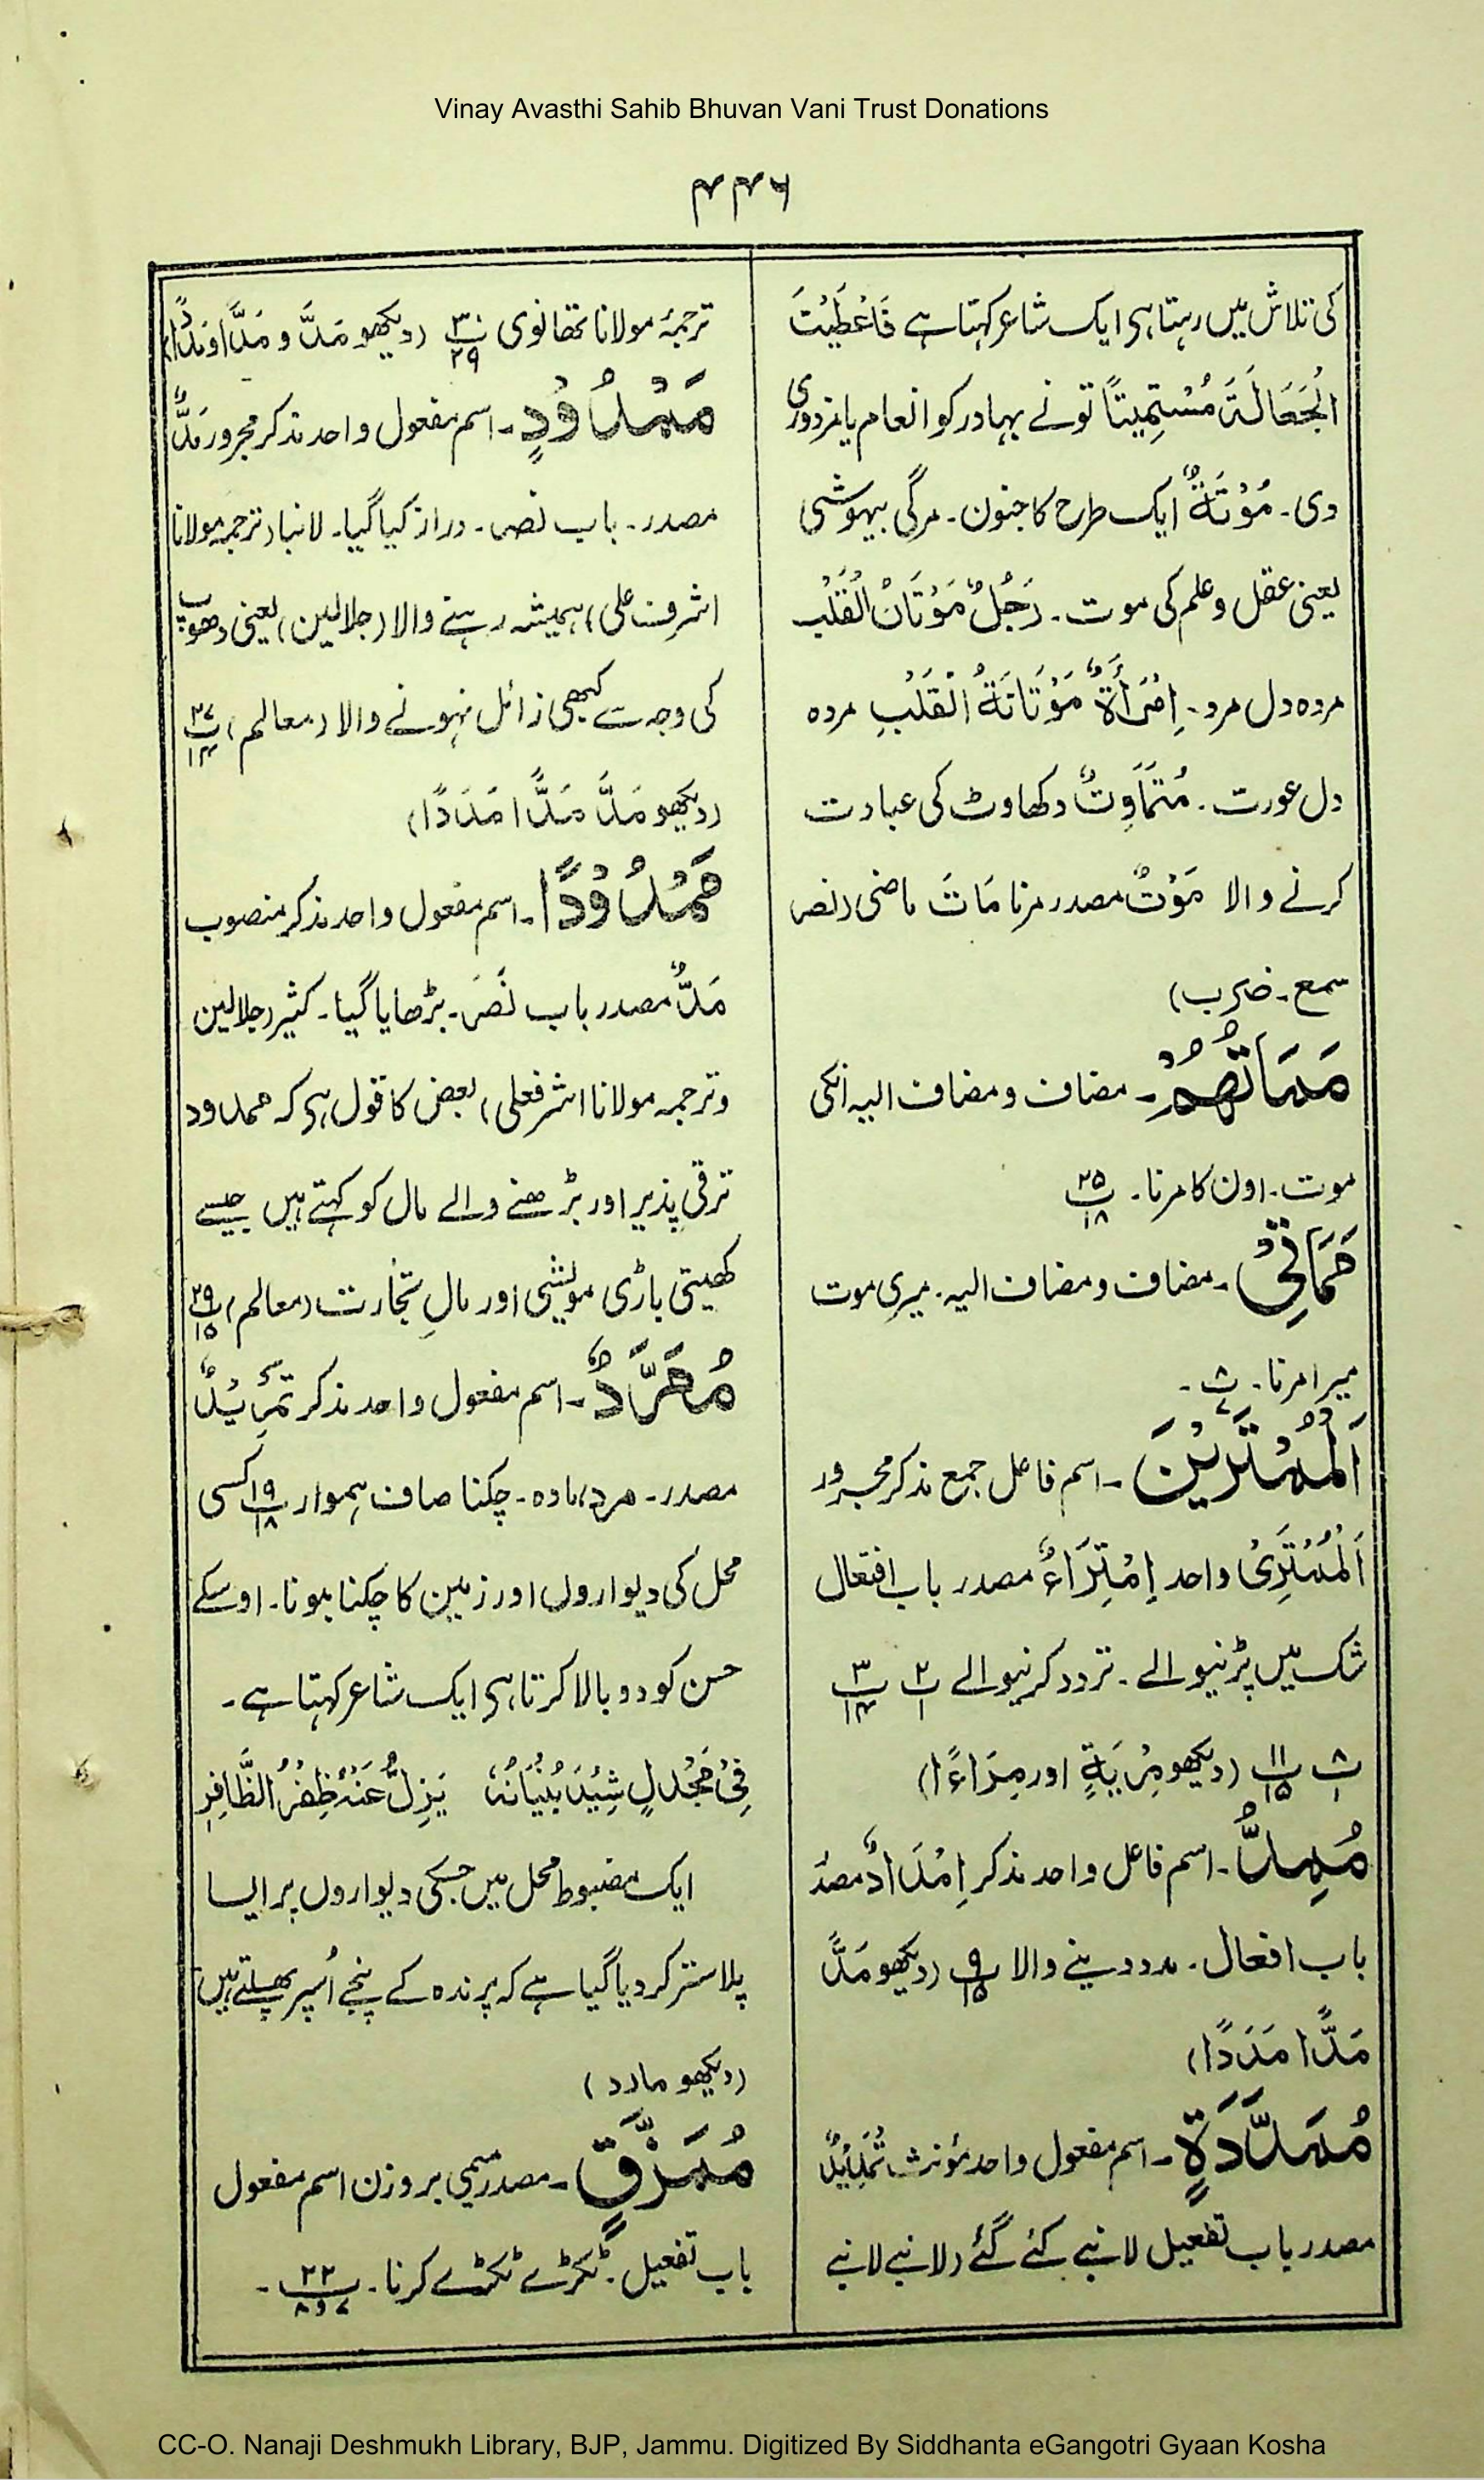 Vinay Avasthi Sahib Bhuvan Vani Trust Donations
۴۴۶
کی تلاش میں رہتا ہی ایک شاعر کہتا ہے فَاَعْطَیْتَ
الْجَعَالَۃَ مُسْتَمِیْتًا تو نے بہادر کو انعام یا مزدوری
دی۔ مُوْتَۃٌ ایک طرح کا جنون۔ مرگی بیہوشی
یعنی عقل و علم کی موت۔ رَجُلٌ مَوْتَانُ الْقَلْبِ
مردہ دل مرد۔ اِمْرَأَۃٌ مَوْتَانَۃُ الْقَلْبِ مردہ
دل عورت۔ مُتَمَاوِتٌ دکھاوٹ کی عبادت
کرنے والا مَوْتٌ مصدر مرنا مَاتَ ماضی (نصر
سمع۔ ضرب)
مَمَاتُھُمْ۔ مضاف و مضاف الیہ انکی
موت۔ اون کا مرنا۔ پ ۲۵/۱۸
مَمَاتِیْ۔ مضاف و مضاف الیہ۔ میری موت
میرا مرنا۔ پ ۸/۷۔
اَلْمُمْتَرِیْنَ۔ اسم فاعل جمع مذکر مجرور
اَلْمُمْتَرِیْ واحد اِمْتِرَاءٌ مصدر باب افتعال
شک میں پڑنیوالے۔ تردد کرنیوالے پ ۲/۱ پ ۳/۱۴
پ ۸/۱ پ ۱۱/۱۵ (دیکھو مِرْیَۃٍ اور مِرَاءً)
مُمِدٌّ۔ اسم فاعل واحد مذکر اِمْدَادٌ مصدر
باب افعال۔ مدد دینے والا پ ۹/۱۵ (دیکھو مَدَّ
مَدًّا مَدَدًا)
مُمَدَّدَۃٍ۔ اسم مفعول واحد مؤنث تَمْدِیْدٌ
مصدر باب تفعیل لانبے کئے گئے (لانبے لانبے
ترجمۂ مولانا تھانوی پ ۳۰/۲۹ (دیکھو مَدَّ و مَدًّا و مَدَدًا)
مَمْدُوْدٍ۔ اسم مفعول واحد مذکر مجرور مَدٌّ
مصدر۔ باب نصر۔ دراز کیا گیا۔ لانبا (ترجمہ مولانا
اشرف علی) ہمیشہ رہنے والا (جلالین) یعنی دھوپ
کی وجہ سے کبھی زائل نہونے والا (معالم) پ ۲۷/۱۴
(دیکھو مَدَّ مَدًّا مَدَدًا)
مَمْدُوْدًا۔ اسم مفعول واحد مذکر منصوب
مَدٌّ مصدر باب نَصَرَ۔ بڑھایا گیا۔ کثیر (جلالین
و ترجمہ مولانا اشرفعلی) بعض کا قول ہی کہ ممدود
ترقی پذیر اور بڑھنے والے مال کو کہتے ہیں جیسے
کھیتی باڑی مویشی اور مالِ تجارت (معالم) پ ۲۹/۱۵
مُمَرَّدٌ۔ اسم مفعول واحد مذکر تَمْرِیْدٌ
مصدر۔ مرد مادہ۔ چکنا صاف ہموار پ ۱۹/۱۸ کسی
محل کی دیواروں اور زمین کا چکنا ہونا۔ اوسکے
حسن کو دوبالا کرتا ہی ایک شاعر کہتا ہے۔
فِیْ مَجْدَلٍ شِیْدَ بُنْیَانُہٗ یَزِلُّ عَنْہُ ظُفُرُ الظَّافِرِ
ایک مضبوط محل میں جسکی دیواروں پر ایسا
پلاستر کر دیا گیا ہے کہ پرندہ کے پنجے اُسپر پھسلتے ہیں
(دیکھو مارد)
مُمَزَّقٍ۔ مصدر میمی بروزن اسم مفعول
باب تفعیل۔ ٹکڑے ٹکڑے کرنا۔ پ ۲۲/۷ و ۸۔
CC-O. Nanaji Deshmukh Library, BJP, Jammu. Digitized By Siddhanta eGangotri Gyaan Kosha